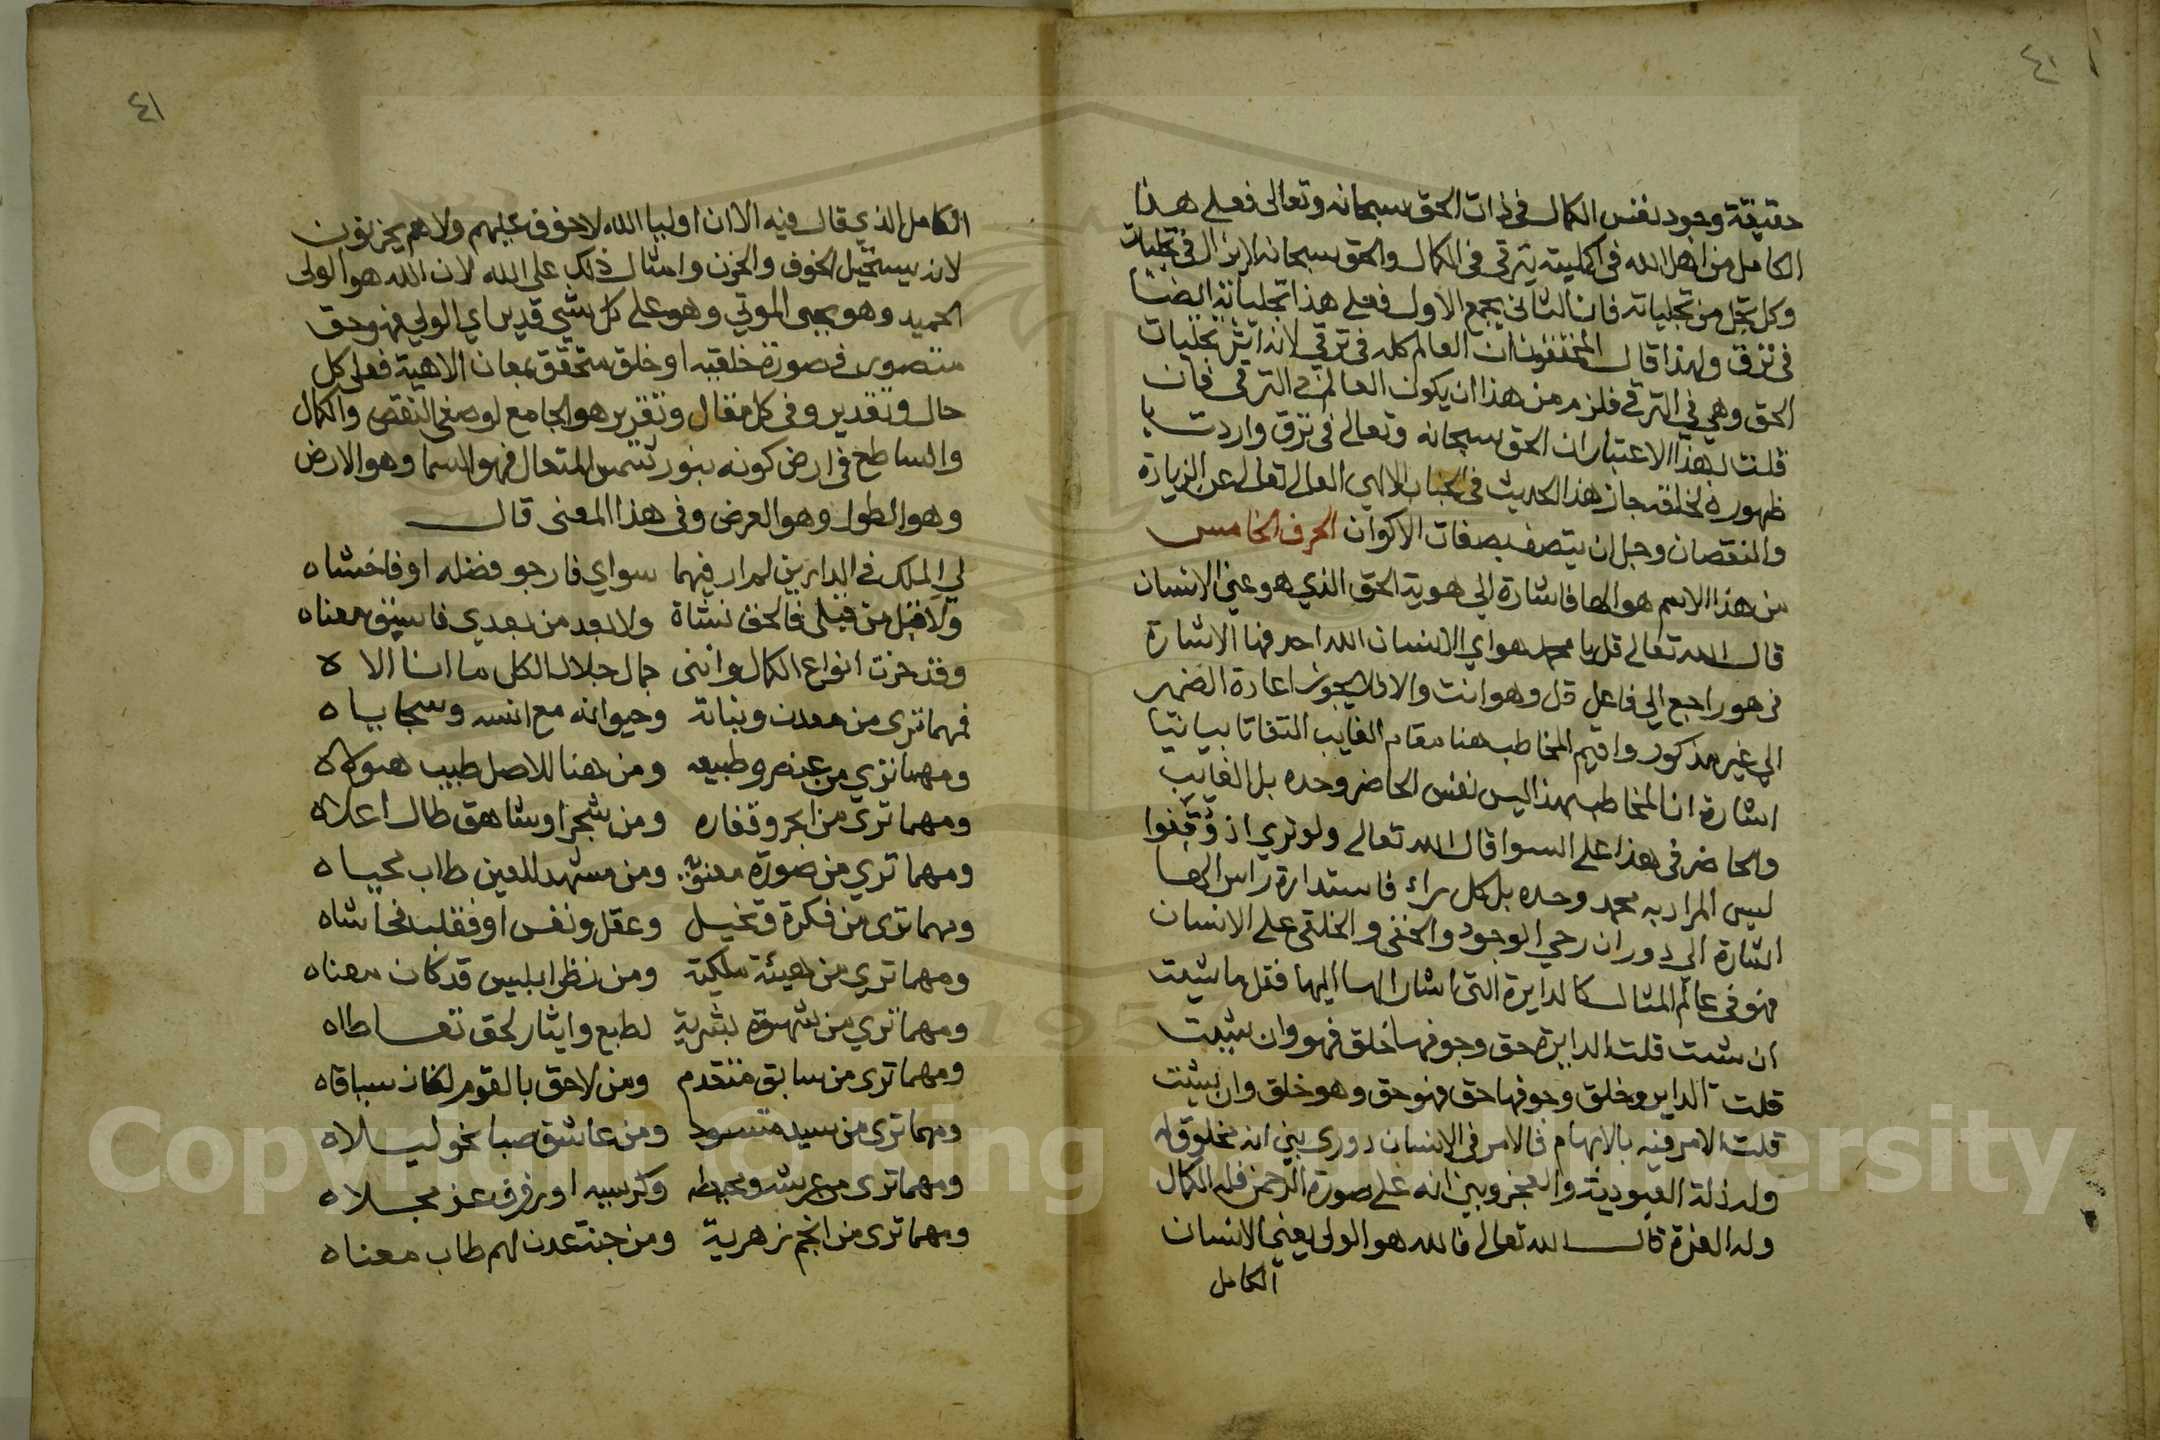 ٤١
حقيقة وجود نفس الكمال في ذات الحق سبحانه وتعالى فعلى هذا
الكامل من اهل الله في اكمليته يترقي في الكمال والحق سبحانه لايزال في تجليات
وكل تجل من تجلياته فان الثاني يجمع الاول فعلى هذا تجلياته ايضا
في ترق ولهذا قال المحققون ان العالم كله في ترقي لانه اثر تجليات
الحق وهي في الترقي فلزم من هذا ان يكون العالم في الترقي فان
قلت بهذا الاعتبار ان الحق سبحانه وتعالى في ترق واردت بـ
ظهوره لخلقه جاز هذا الحديث في الجناب الالهي العالي تعالى عن الزيادة
والنقصان وجل ان يتصف بصفات الاكوان الحرف الخامس
من هذا الاسم هو الها فاشارة الي هوية الحق الذي هو عين الانسان
قال الله تعالى قل يا محمد هو اي الانسان الله احد فها الاشارة
في هو راجع الي فاعل قل وهو انت والا فلا يجوز اعادة الضمير
الي غير مذكور واقيم المخاطب هنا مقام الغايب التفاتا بيانيا
اشارة ان المخاطب بهذا ليس نفس الحاضر وحده بل الغايب
والحاضر في هذا على السوا قال الله تعالى ولو ترى اذ وُقِفُوا
ليس المراد به محمد وحده بل كل راء فاستدارة راس الها
اشارة الي دوران رحي الوجود والحقي والخلقي على الانسان
فهو في عالم المثال كالدايرة التي اشار الها اليها فقل ما شيت
ان شيت قلت الدايرة حق وجوفها خلق فهو وان شيت
قلت الدايرة خلق وجوفها حق فهو حق وهو خلق وان شيت
قلت الامر فيه بالابهام فالامر في الانسان دوري بين انه مخلوق له
وله ذلة العبودية والعجز وبين انه على صورة الرحمن فله الكمال
وله العزة قال الله تعالى فالله هو الولي يعني الانسان
الكامل
٤١
الكامل الذي قال فيه الا ان اوليا الله لا خوف عليهم ولا هم يحزنون
لانه يستحيل الخوف والحزن وامثال ذلك على الله لان الله هو الولى
الحميد وهو يحيى الموتي وهو على كل شي قدير اي الولي فهو حق
متصور في صورة خلقيه او خلق متحقق بمعان الاهية فعلى كل
حال وتقدير وفي كل مقال وتقرير هو الجامع لوصفي النقص والكمال
والساطع في ارض كونه بنور شمس المتعال فهو السما وهو الارض
وهو الطول وهو العرض وفي هذا المعنى قال
لي الملك في الدارين لم ار فيهما سواي فارجو فضله او فاخشاه
ولا قبل من قبلى فالحق نشاة ولا بعد من بعدي فاسبق معناه
وقد حزت انواع الكمال وانني جمال جلال الكل ما انا الا ه
فمهما ترى من معدن ونباته وحيوانه مع انسه وسجاياه
ومهما تري من عنصر وطبيعه ومن هنا للاصل طيب هيولاه
ومهما ترى من ابحر وقفاره ومن شجر او شاهق طال اعلاه
ومهما تري من صورة معنوية ومن مشهد للعين طاب محياه
ومهما ترى من فكرة وتخيل وعقل ونفس او فقلب فحاشاه
ومهما تري من هيئة ملكية ومن نظر ابليس قد كان معناه
ومهما تري من شهوة بشرية لطبع وايثار لحق تعاطاه
ومهما ترى من سابق متقدم ومن لاحق بالقوم لفان ساقاه
ومهما ترى من سيد متسود ومن عاشق صبا نحو ليلاه
ومهما ترى من عرشه ومحيطه وكرسيه او رفرف عز مجلاه
ومهما ترى من انجم زهرية ومن جنة عدن لهم طاب معناه
Copyright © King Saud University
1957